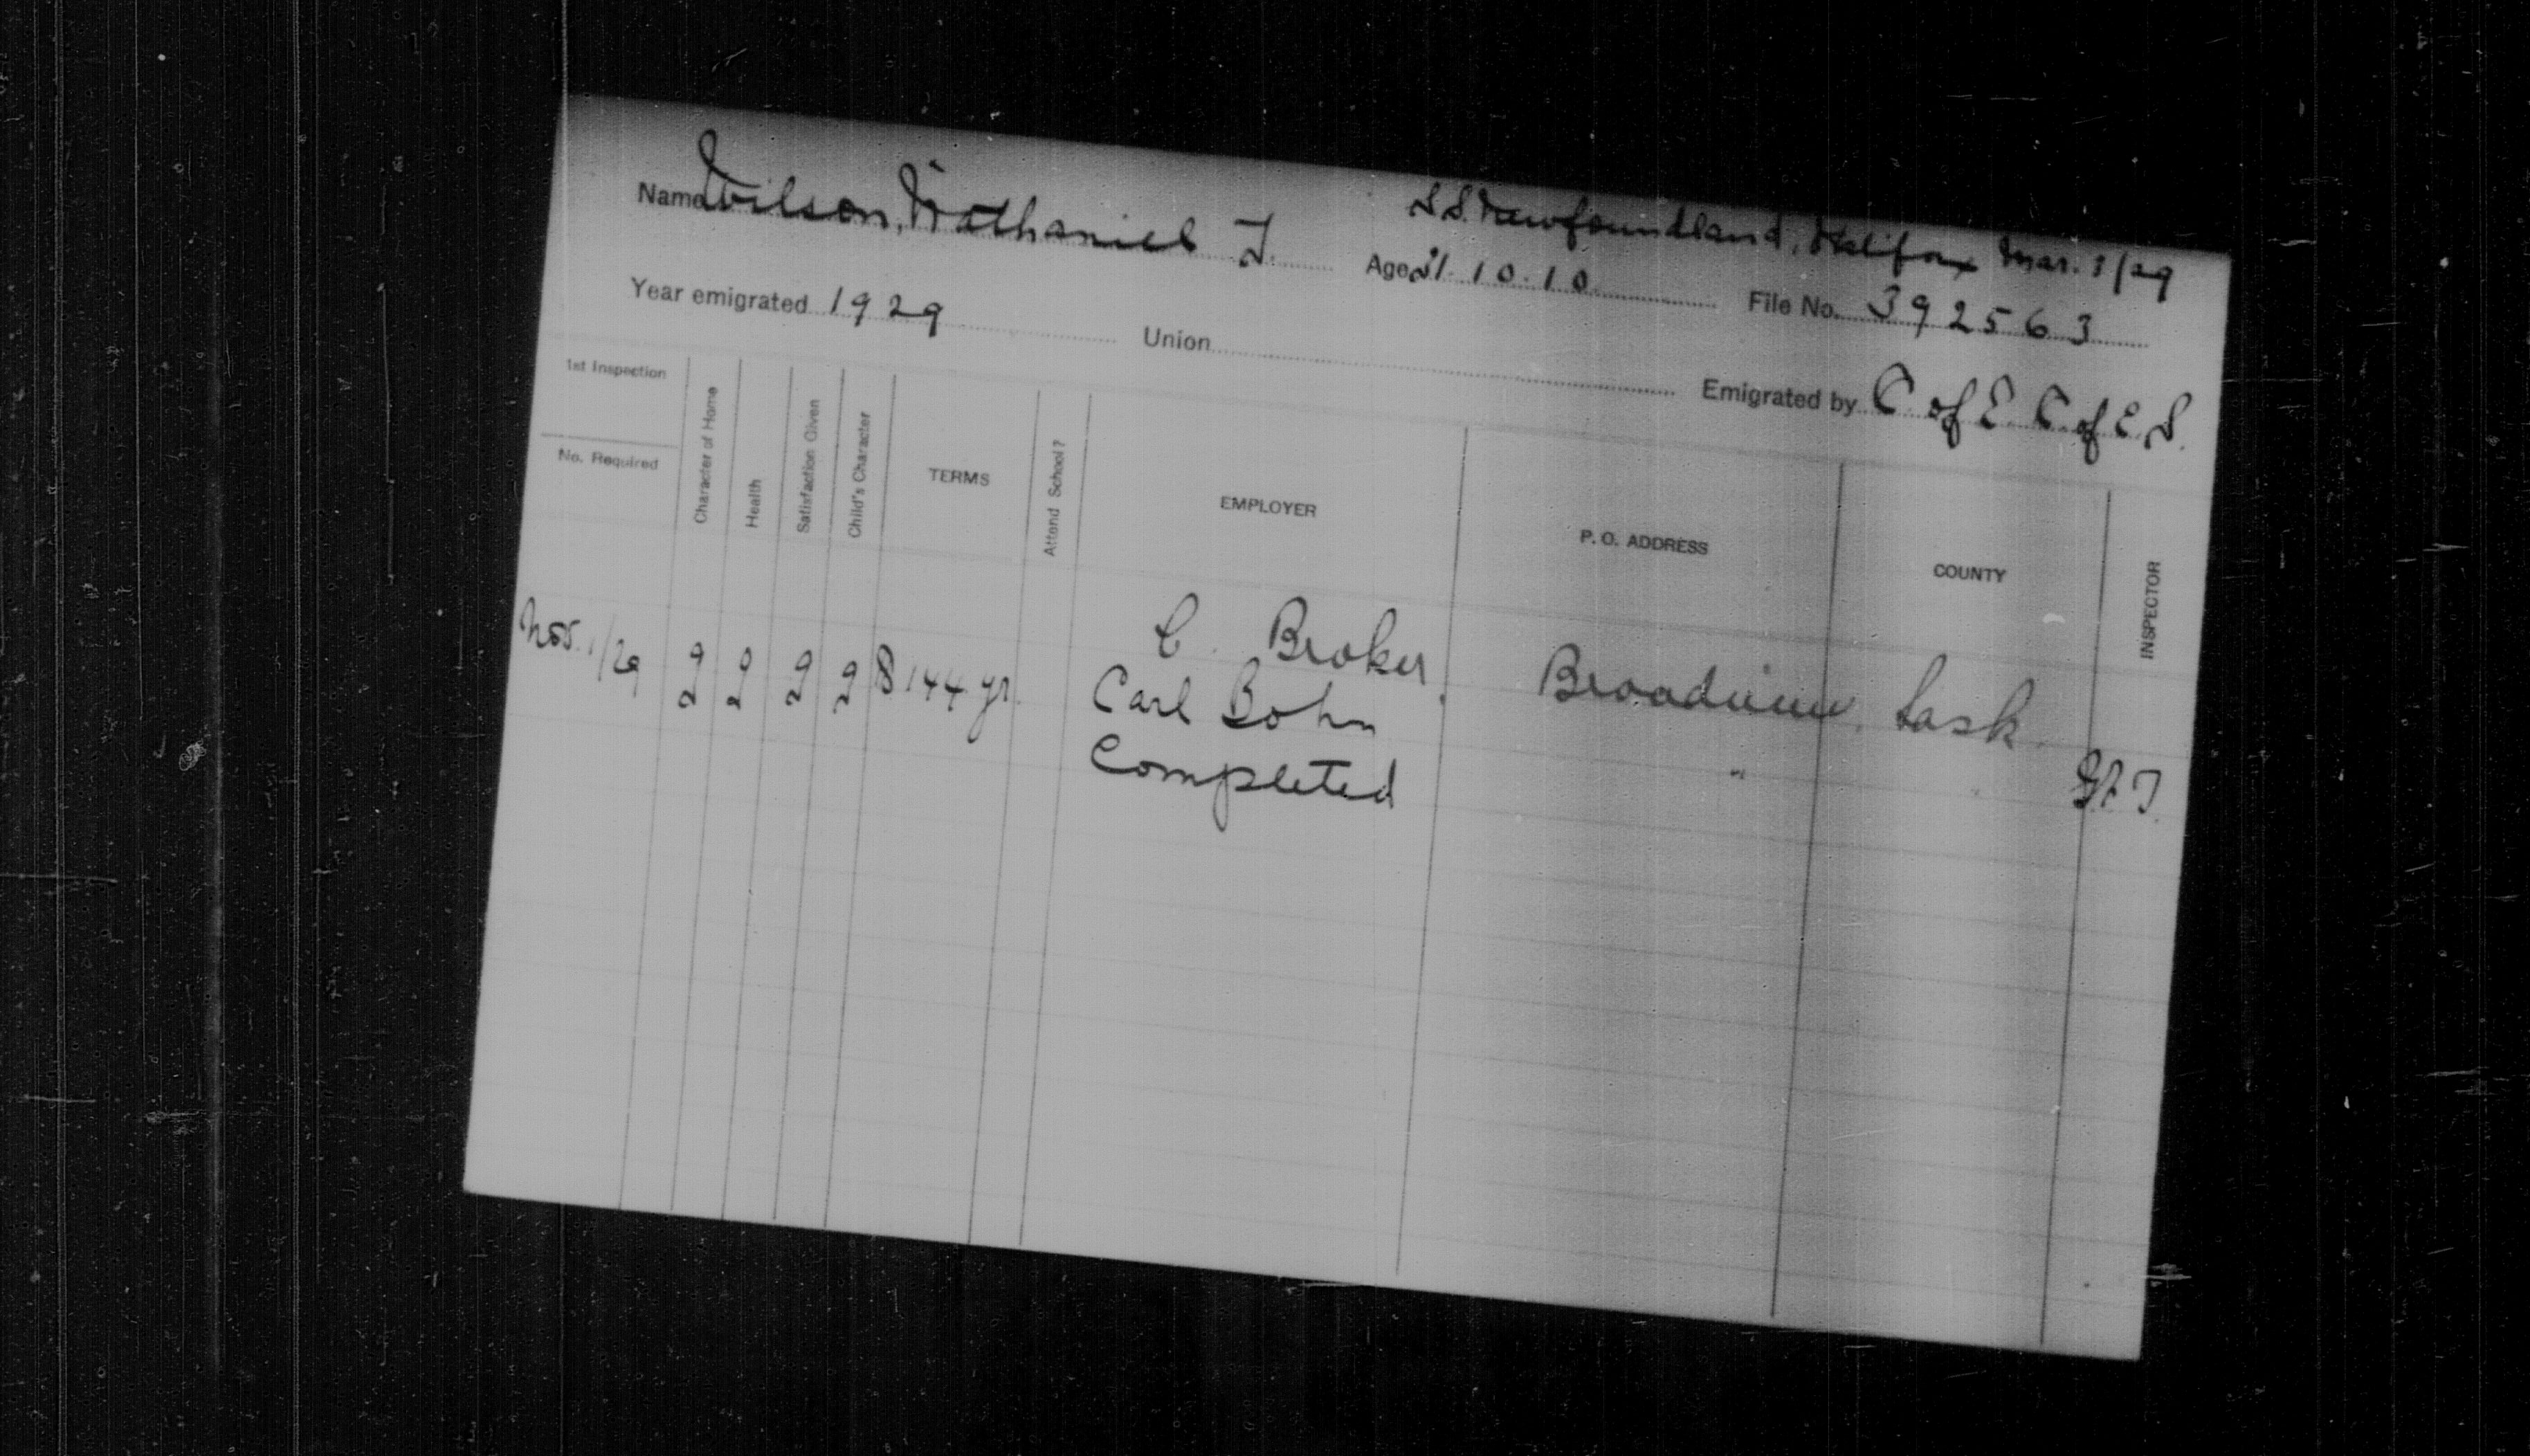 S.S. Newfoundland, Halifax Mar. 1/29
Name Wilson, Nathaniel J. Age 21.10.10 File No. 392563
Year emigrated 1929 Union Emigrated by C. of E. C. of E. S.
1st Inspection
No. Required
Character of Home
Health
Satisfaction Given
Child's Character
TERMS
Attend School?
EMPLOYER
P. O. ADDRESS
COUNTY
INSPECTOR
C. Broker Broadview, Sask.
Nov. 1/29 g g g g $144 yr. Carl Bohn "
Completed